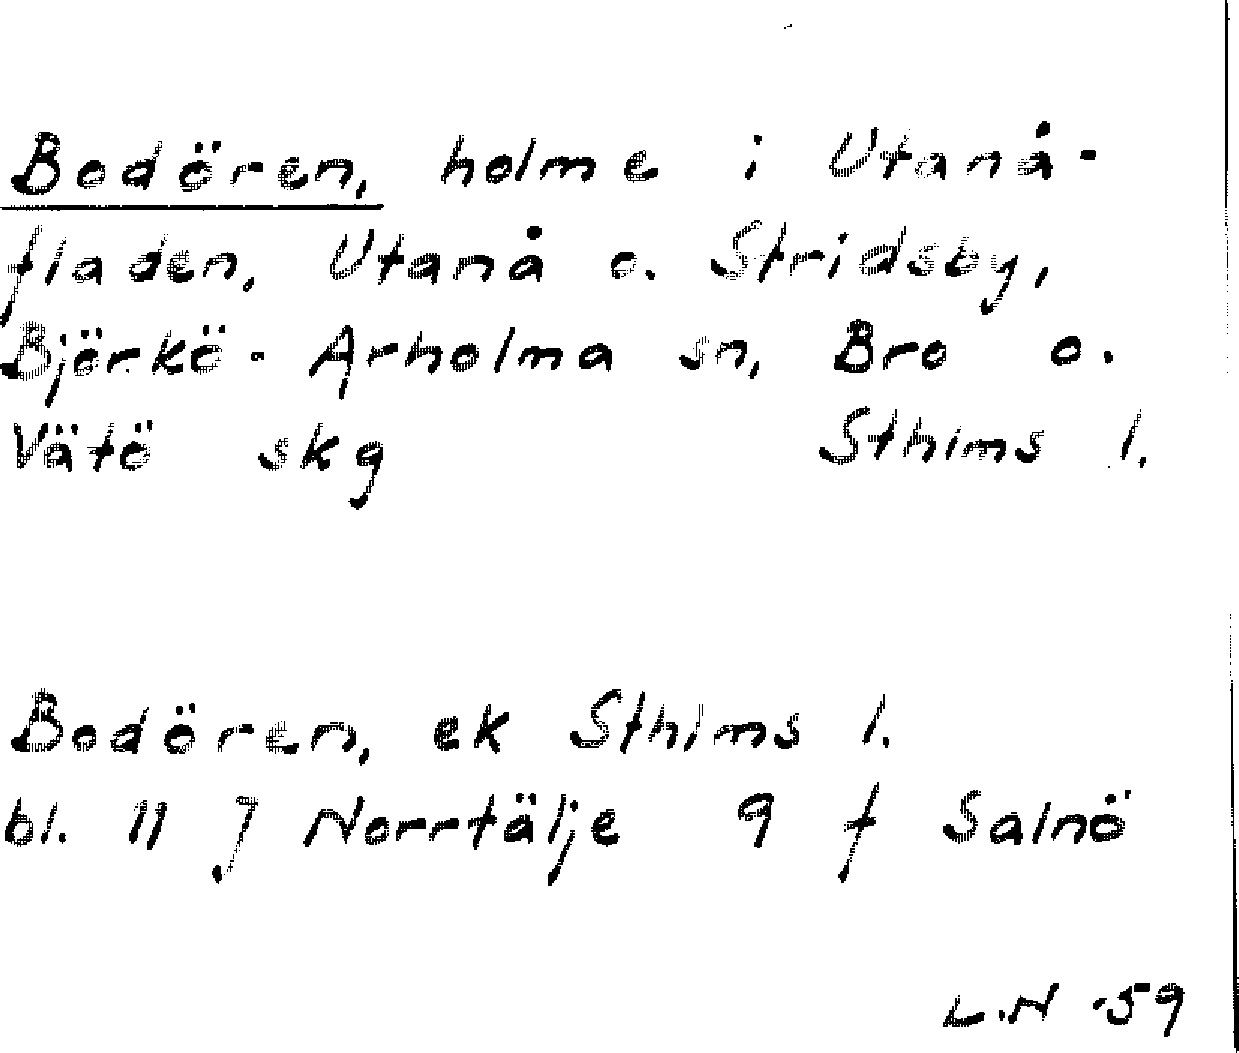 Bodören, holme i Utanå-
fladen, Utanå o. Stridsby,
Björkö- Arholma sn, Bro o.
Vätö skg Sthlms l.
Bodören, ek Sthlms l.
bl. 11 J Norrtälje 9 f Salnö
L.N -59